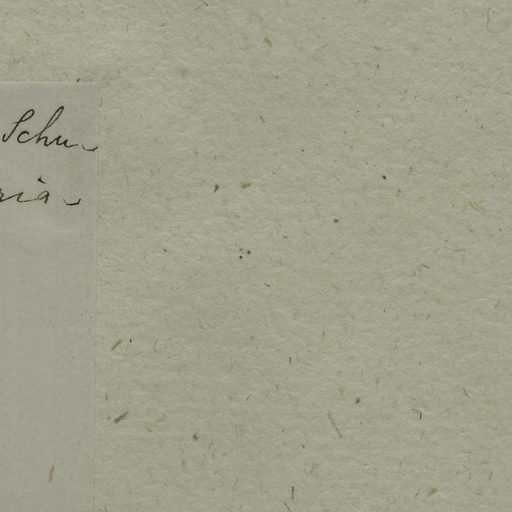 Schu.
ria.